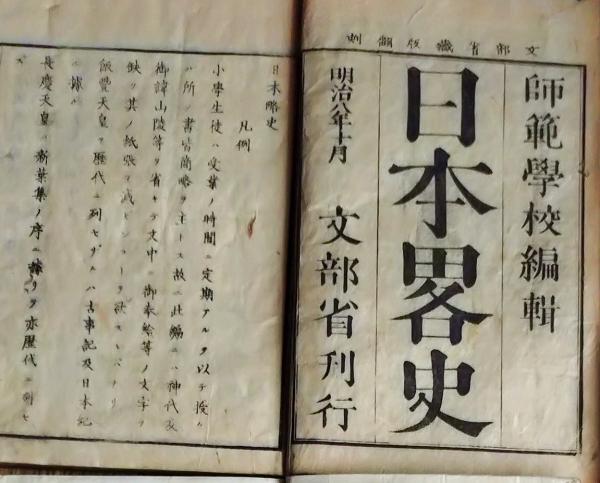 文部省藏版翻刻
師範學校編輯
日本畧史
明治八年十月 文部省刊行
日本略史
凡例
小學生徒ハ受業ノ時間ニ定期アルヲ以テ授ク
ル所ノ書皆簡略ヲ主トス故ニ此編ニハ神代及
御諱山陵等ヲ省キテ文中ニ御奉給等ノ文字ヲ
缺ク其ノ紙張ヲ減ゼンコトヲ欲スレバナリ
飯豐天皇ヲ歴代ニ列セザルハ古事記及日本紀
ニ據ル
長慶天皇ハ新葉集ノ序ニ據リテ亦歴代ニ列セ
ズ